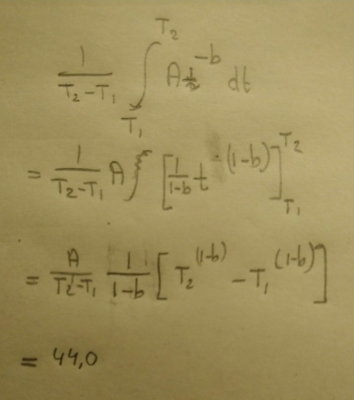 1/(T₂-T₁) ∫_{T₁}^{T₂} A t^{-b} dt
= 1/(T₂-T₁) A [1/(1-b) t^{(1-b)}]_{T₁}^{T₂}
= A/(T₂-T₁) 1/(1-b) [T₂^{(1-b)} - T₁^{(1-b)}]
= 44,0